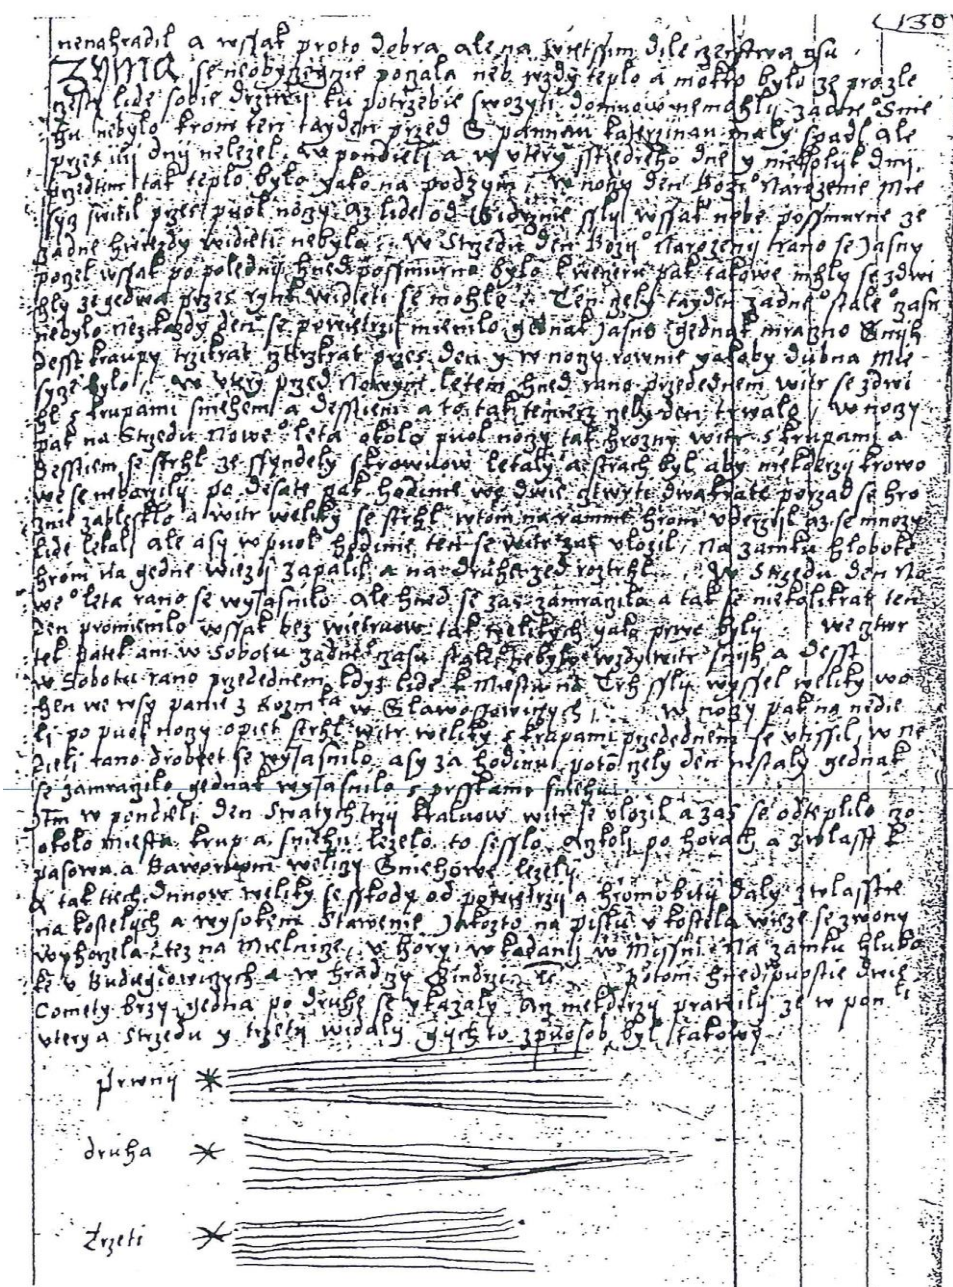 130
nenahradil a wssak proto dobra ale na wietssim dile czerstwa gsu
ZYMA se neobyczegnie poczala neb wzdy teplo a mokro bylo ze pro zle
czesty lide sobie drziwij ku potrzebie swozyti domuow nemohly zadneo Snie
hu nebylo krom ten tayden przed S pannau katerzinau maly spadl ale
przes iiij dnij nelezel w pondieli a w utery sstiedreho dne y niekolyk dnij
przedtim tak teplo bylo yako na podzym w noczy den Bozio Narozenie Mie
sycz switil przes puol noczy az lide od ssly wssak nebe possmurne ze
zadne hwiezdy widieti nebylo W Strzedu den Bozijo Narozenij rano se Jasny
poczel wssak po poledni hned possmurno bylo k weczeru pak takowe mhly se zdwi
hly ze gedwa przes rynk widieti se mohlo Ten czely tayden zadneo staleo czasu
nebylo nez kazdy den se powietrzij mienilo gednak Jasno gednak mrazno Snijh
desst kraupy trzikrat cztyrzikrat przes den y w noczy rownie yakoby dubna Mie
sycze bylo w utery przed Nowym letem hned rano przedednem witr se zdwi
hl s krupami sniehem a desstiem a to tak temierz czely den trwalo w noczy
pak na Strzedu Noweo leta okolo puol noczy tak hrozny witr s krupami a
desstiem se strhl ze ssyndely s krowuow letaly a strach byl aby niekterzij krowo
we se neborzily po desate pak hodinie we dwie cztwrti dwakrate porzad se hro
znie zablesklo a witr weliky se strhl wtom naramnie hrom uderzil az se mnozy
lide lekali ale asy w puol hodinie ten se witr zas ulozil Na zamku hloboke
hrom na gedne wiezy zapalil a na druhe zed roztrhl W Strzedu den No
weo leta rano se wyjasnilo ale hned se zas zamraczilo a tak se niekolikrat ten
den promienilo wssak bez wietruow tak welikych yako prwe byly We cztwr
tek Patek ani w Sobotu zadneo czasu staleo nebylo wzdy witr snijh a desst
w Sobotu rano przedednem kdyz lide k Miestu na Trh ssly wyssel weliky wo
hen we wsy panie z Rozmta w Slawossowiczych w noczy pak na nedie
li po puol noczy opiet strhl witr weliky s krupami przedednem se utissil w ne
dieli rano drobet se wyjasnilo asy za hodinu poto czely den nestaly gednak
se zamraczilo gednak wyjasnilo s prsskami sniehu
Jtm w pondieli den Swatych trzy kraluow witr se ulozil a zas se oteplilo co
okolo miesta krup a sniehu lezelo to sesslo a toli po horach a zwlasst k
pasowu a Baworuom weliczy Sniehowe lezely
A tak tiech dnuow weliky se sskody od powietrzij a hromobitij daly zwlasstie
na kostelych a wysokem Stawenie Jakozto na pisku u kostela wieze se zwony
wyhorzela tez na Mielnicze u hory w kadani w Missni Na zamku hlubo
ke u Budiegiowiczych a w hradczy Gindrz: etc Potom hned puostie dwie
Comety brzy gedna po druhe se ukazaly an niekterzy prawily ze w ponli
utery a strzedu y trzeti widaly gich to zpuosob byl takowy
prwnij
druha
trzeti